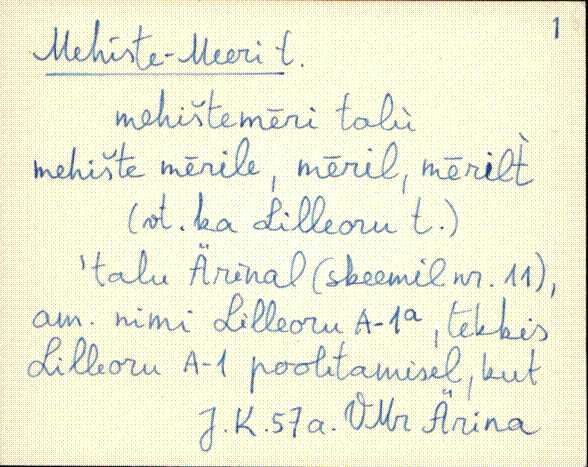 1
Mehiste-Meeri t.
mehištemēri talù
mehište mērile, mēril, mērilt̀
(vt. ka Lilleoru t.)
'talu Ärinal (skeemil nr. 11),
am. nimi Lilleoru A-1a, tekkis
Lilleoru A-1 poolitamisel, kut
J.K. 57 a. VMr Ärina